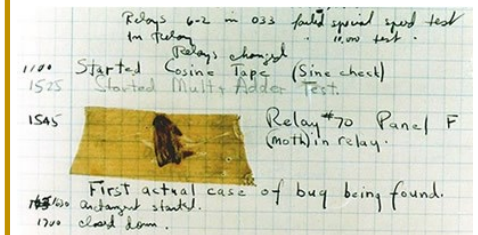 Relays 6-2 in 033 failed special speed test
in relay 10,000 test.
Relays changed
1100 Started Cosine Tape (Sine check)
1525 Started Mult + Adder Test.
1545 Relay #70 Panel F
(moth) in relay.
First actual case of bug being found.
1630 antangent started.
1700 closed down.